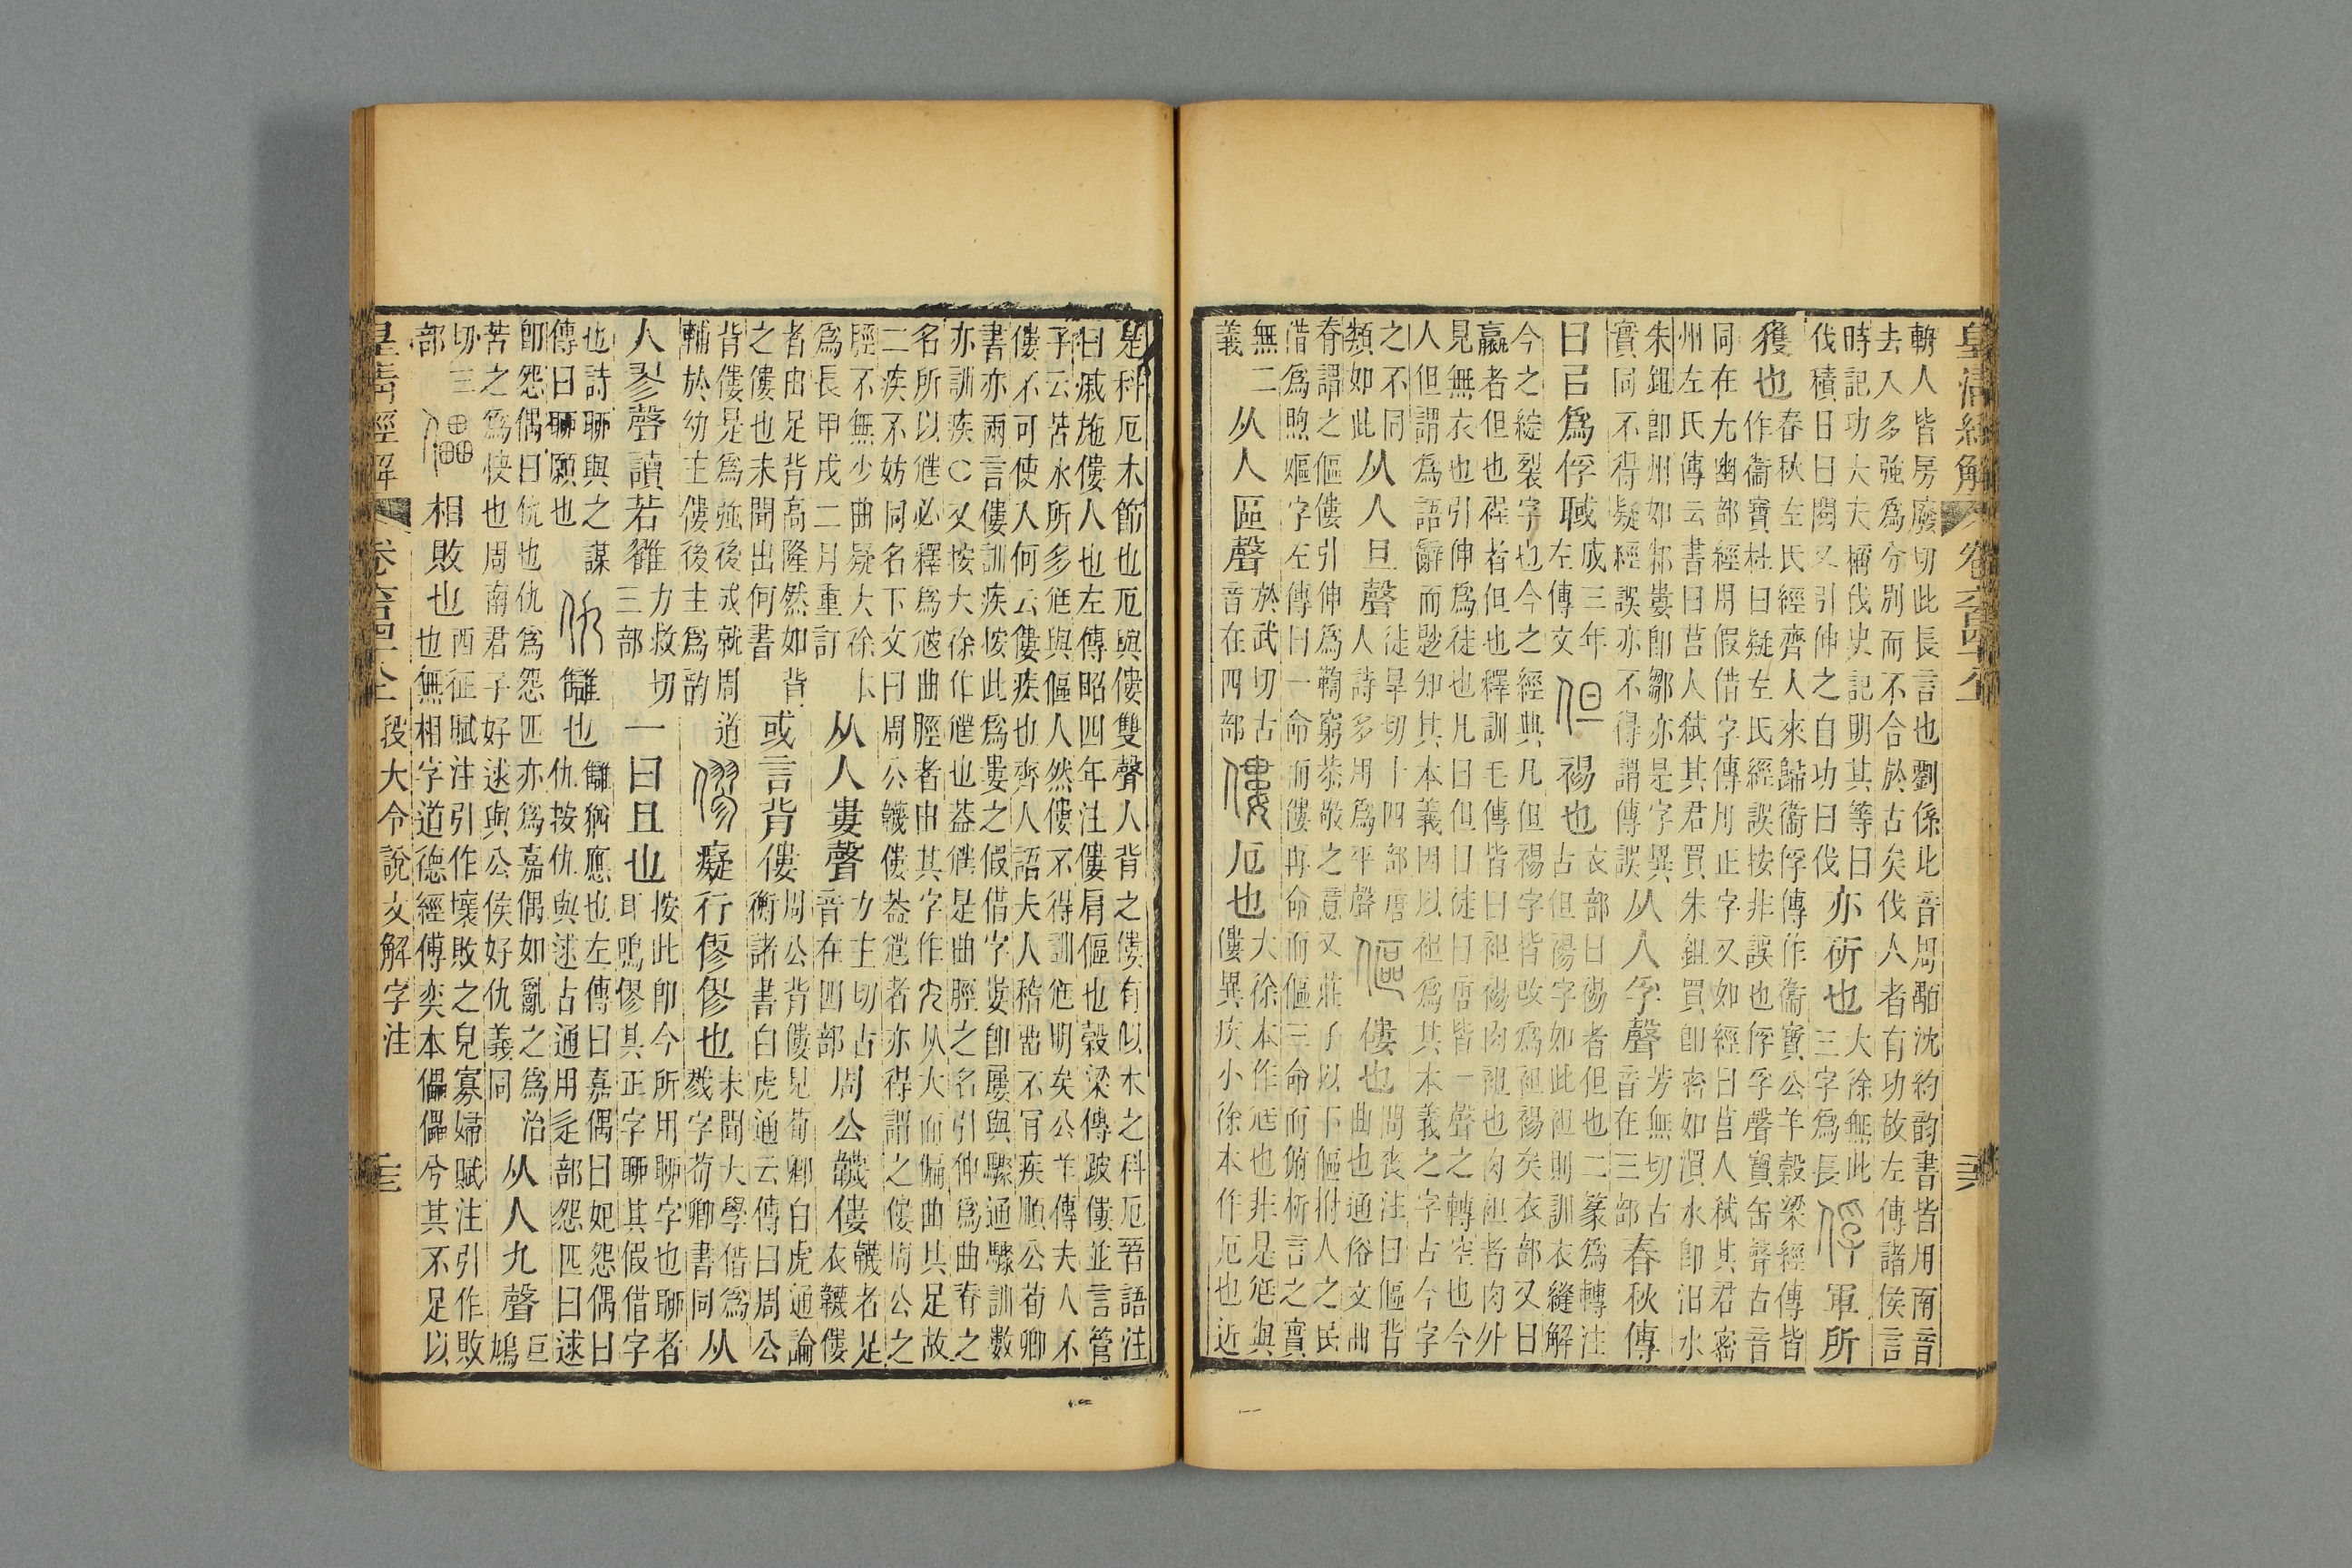 皇清經解 卷六百四十八上
輈人皆房廢切此長言也劉係此音周顒沈約韵書皆用南音
去入多強爲分別而不合於古矣伐人者有功故左傳諸侯言
時記功大夫稱伐史記明其等曰
伐積日曰閱又引伸之自功曰伐
亦斫也
大徐無此
三字爲長
俘 軍所
獲也
春秋左氏經齊人來歸衞俘傳作衞寶公羊榖梁經傳皆
作衞寶杜曰疑左氏經誤按非誤也俘孚聲寶缶聲古音
同在尤幽部經用假借字傳用正字又如經曰莒人弒其君密
州左氏傳云書曰莒人弒其君買朱鉏買卽密如湏水卽汨水
朱鉏卽州如邾婁卽鄒亦是字異
實同不得疑經誤亦不得謂傳誤
从人孚聲
芳無切古
音在三部
春秋傳
曰㠯爲俘聝
成三年
左傳文
但 裼也
衣部曰裼者但也二篆爲轉注
古但裼字如此袒則訓衣縫解
今之綻裂字也今之經典凡但裼字皆改爲袒裼矣衣部又曰
臝者但也裎者但也釋訓毛傳皆曰袒裼肉袒也肉袒者肉外
見無衣也引伸爲徒也凡曰但曰徒曰唐皆一聲之轉空也今
人但謂爲語辭而尟知其本義因以袒爲其本義之字古今字
之不同
類如此
从人旦聲
徒旱切十四部唐
人詩多用爲平聲
傴 僂也
問喪注曰傴背
曲也通俗文曲
脊謂之傴僂引伸爲鞠窮恭敬之意又莊子以下傴拊人之民
借爲煦嫗字左傳曰一命而僂再命而傴三命而俯析言之實
無二
義
从人區聲
於武切古
音在四部
僂 厄也
大徐本作尫也非是尫與
僂異疾小徐本作厄也近
是科厄木節也厄與僂雙聲人背之僂有似木之科厄晉語注
曰戚施僂人也左傳昭四年注僂肩傴也榖梁傳跛僂並言管
子云苦水所多尫與傴人然僂不得訓尫明矣公羊傳夫人不
僂不可使人何云僂疾也齊人語夫人稽畱不肯疾順公荀卿
書亦兩言僂訓疾按此爲婁之假借字婁卽屢與驟通驟訓數
亦訓疾○又按大徐作尫也葢尫是曲脛之名引伸爲曲脊之
名所以尫必釋爲㝿曲脛者由其字作尣从大而偏曲其足故
二疾不妨同名下文曰周公韤僂葢尫者亦得謂之僂周公之
脛不無少曲疑大徐本
爲長甲戌二月重訂
从人婁聲
力主切古
音在四部
周公韤僂
韤者足
衣韤僂
者由足背高隆然如背
之僂也未聞出何書
或言背僂
周公背僂見荀卿白虎通論
衡諸書白虎通云傳曰周公
背僂是爲強後成就周道
輔於幼主僂後主爲韵
僇 癡行僇僇也
未聞大學借爲
戮字荀卿書同
从
人翏聲讀若雡
力救切
三部
一曰且也
按此卽今所用聊字也聊者
耳鳴僇其正字聊其假借字
也詩聊與之謀
傳曰聊願也
仇 讎也
讎猶應也左傳曰嘉偶曰妃怨偶曰
仇按仇與逑古通用辵部怨匹曰逑
卽怨偶曰仇也仇爲怨匹亦爲嘉偶如亂之爲治
苦之爲快也周南君子好逑與公侯好仇義同
从人九聲
巨
鳩
切三
部
儡 相敗也
西征賦注引作壞敗之皃寡婦賦注引作敗
也無相字道德經傅奕本儡儡兮其不足以
皇清經解 卷六百四十八上 段大令說文解字注